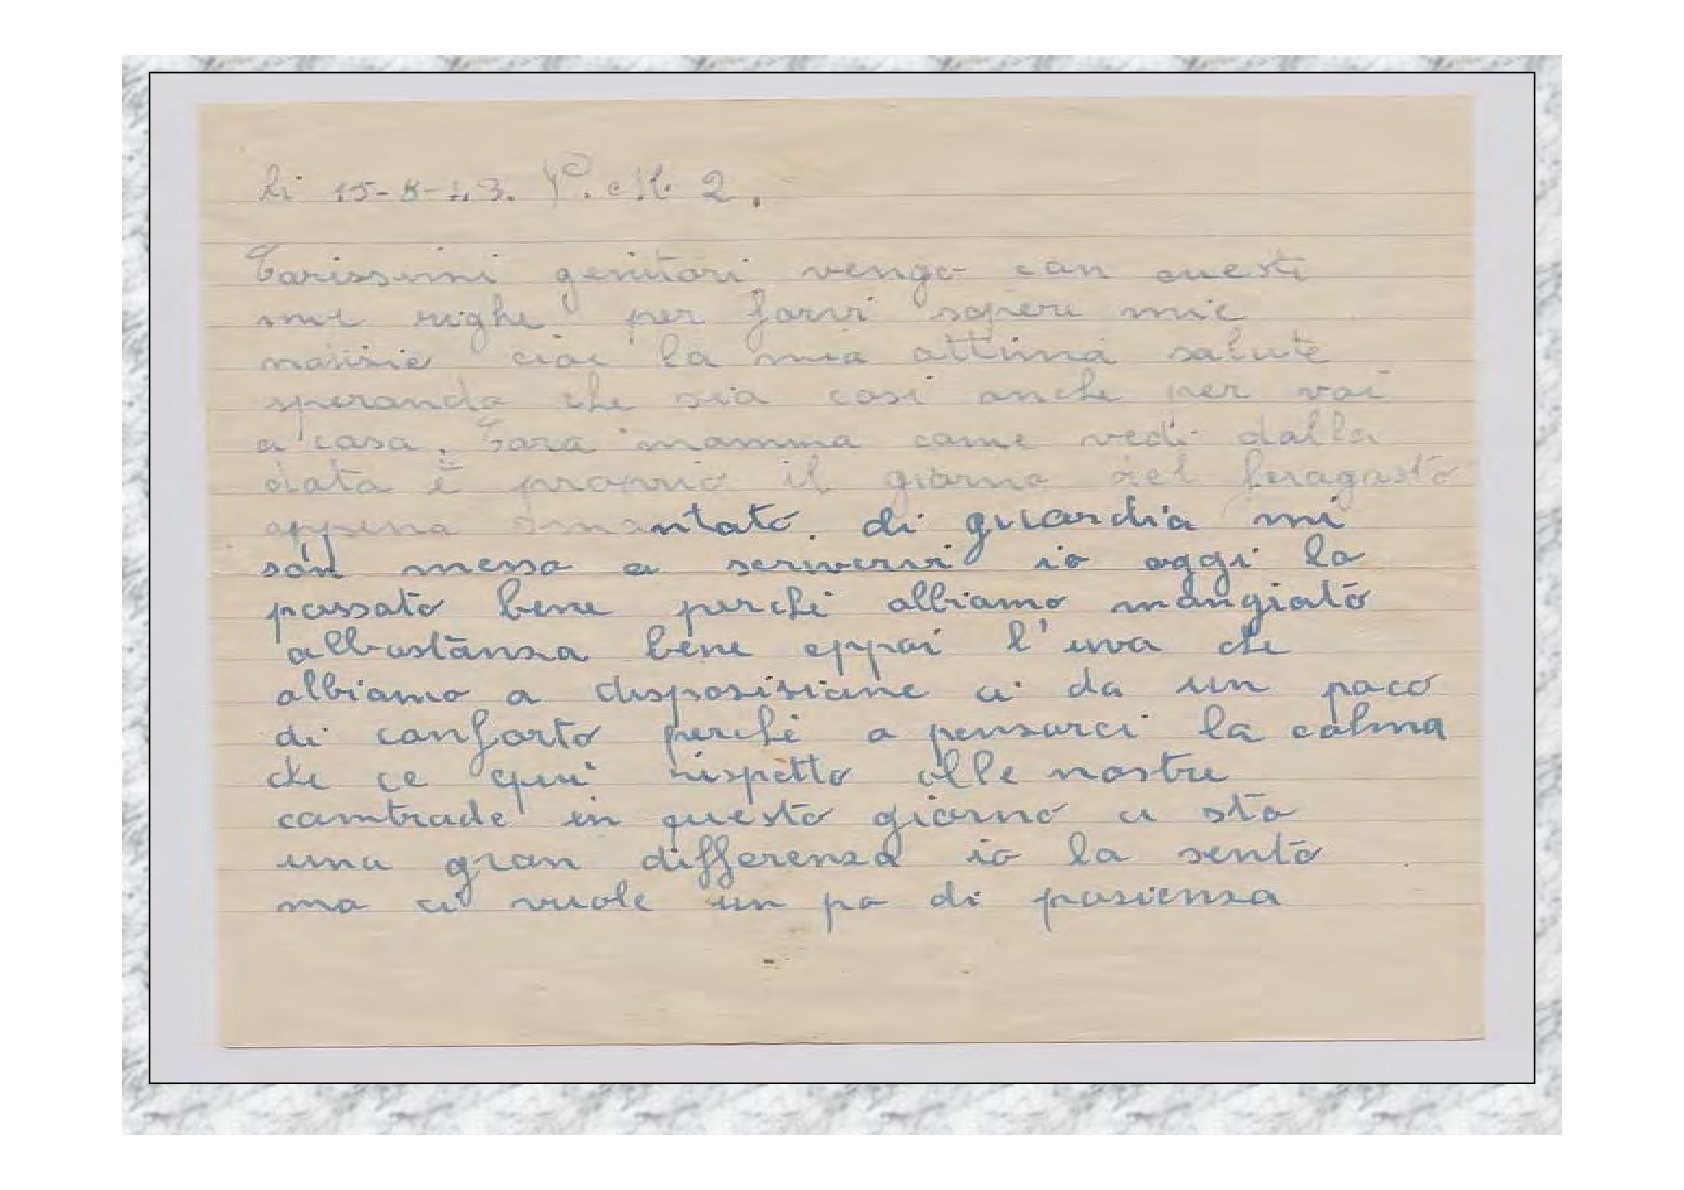 li 15-8-43. P. M. 2.
Carissimi genitori vengo con questi
miei righe per farvi sapere mie
notisie cioe la mia attima salute
sperando che sia cosi anche per voi
a casa. Cara mamma come vedi dalla
data è proprio il giorno del feragosto
appena smontato di guardia mi
son messo a scrivervi io oggi lo
passato bene perchè abbiamo mangiato
abbastanza bene eppoi l'uva che
abbiamo a disposisione ci da un poco
di conforto perchè a pensarci la calma
che ce qui rispetto alle nostre
contrade in questo giorno ci sta
una gran differenza io la sento
ma ci vuole un po di pasienza